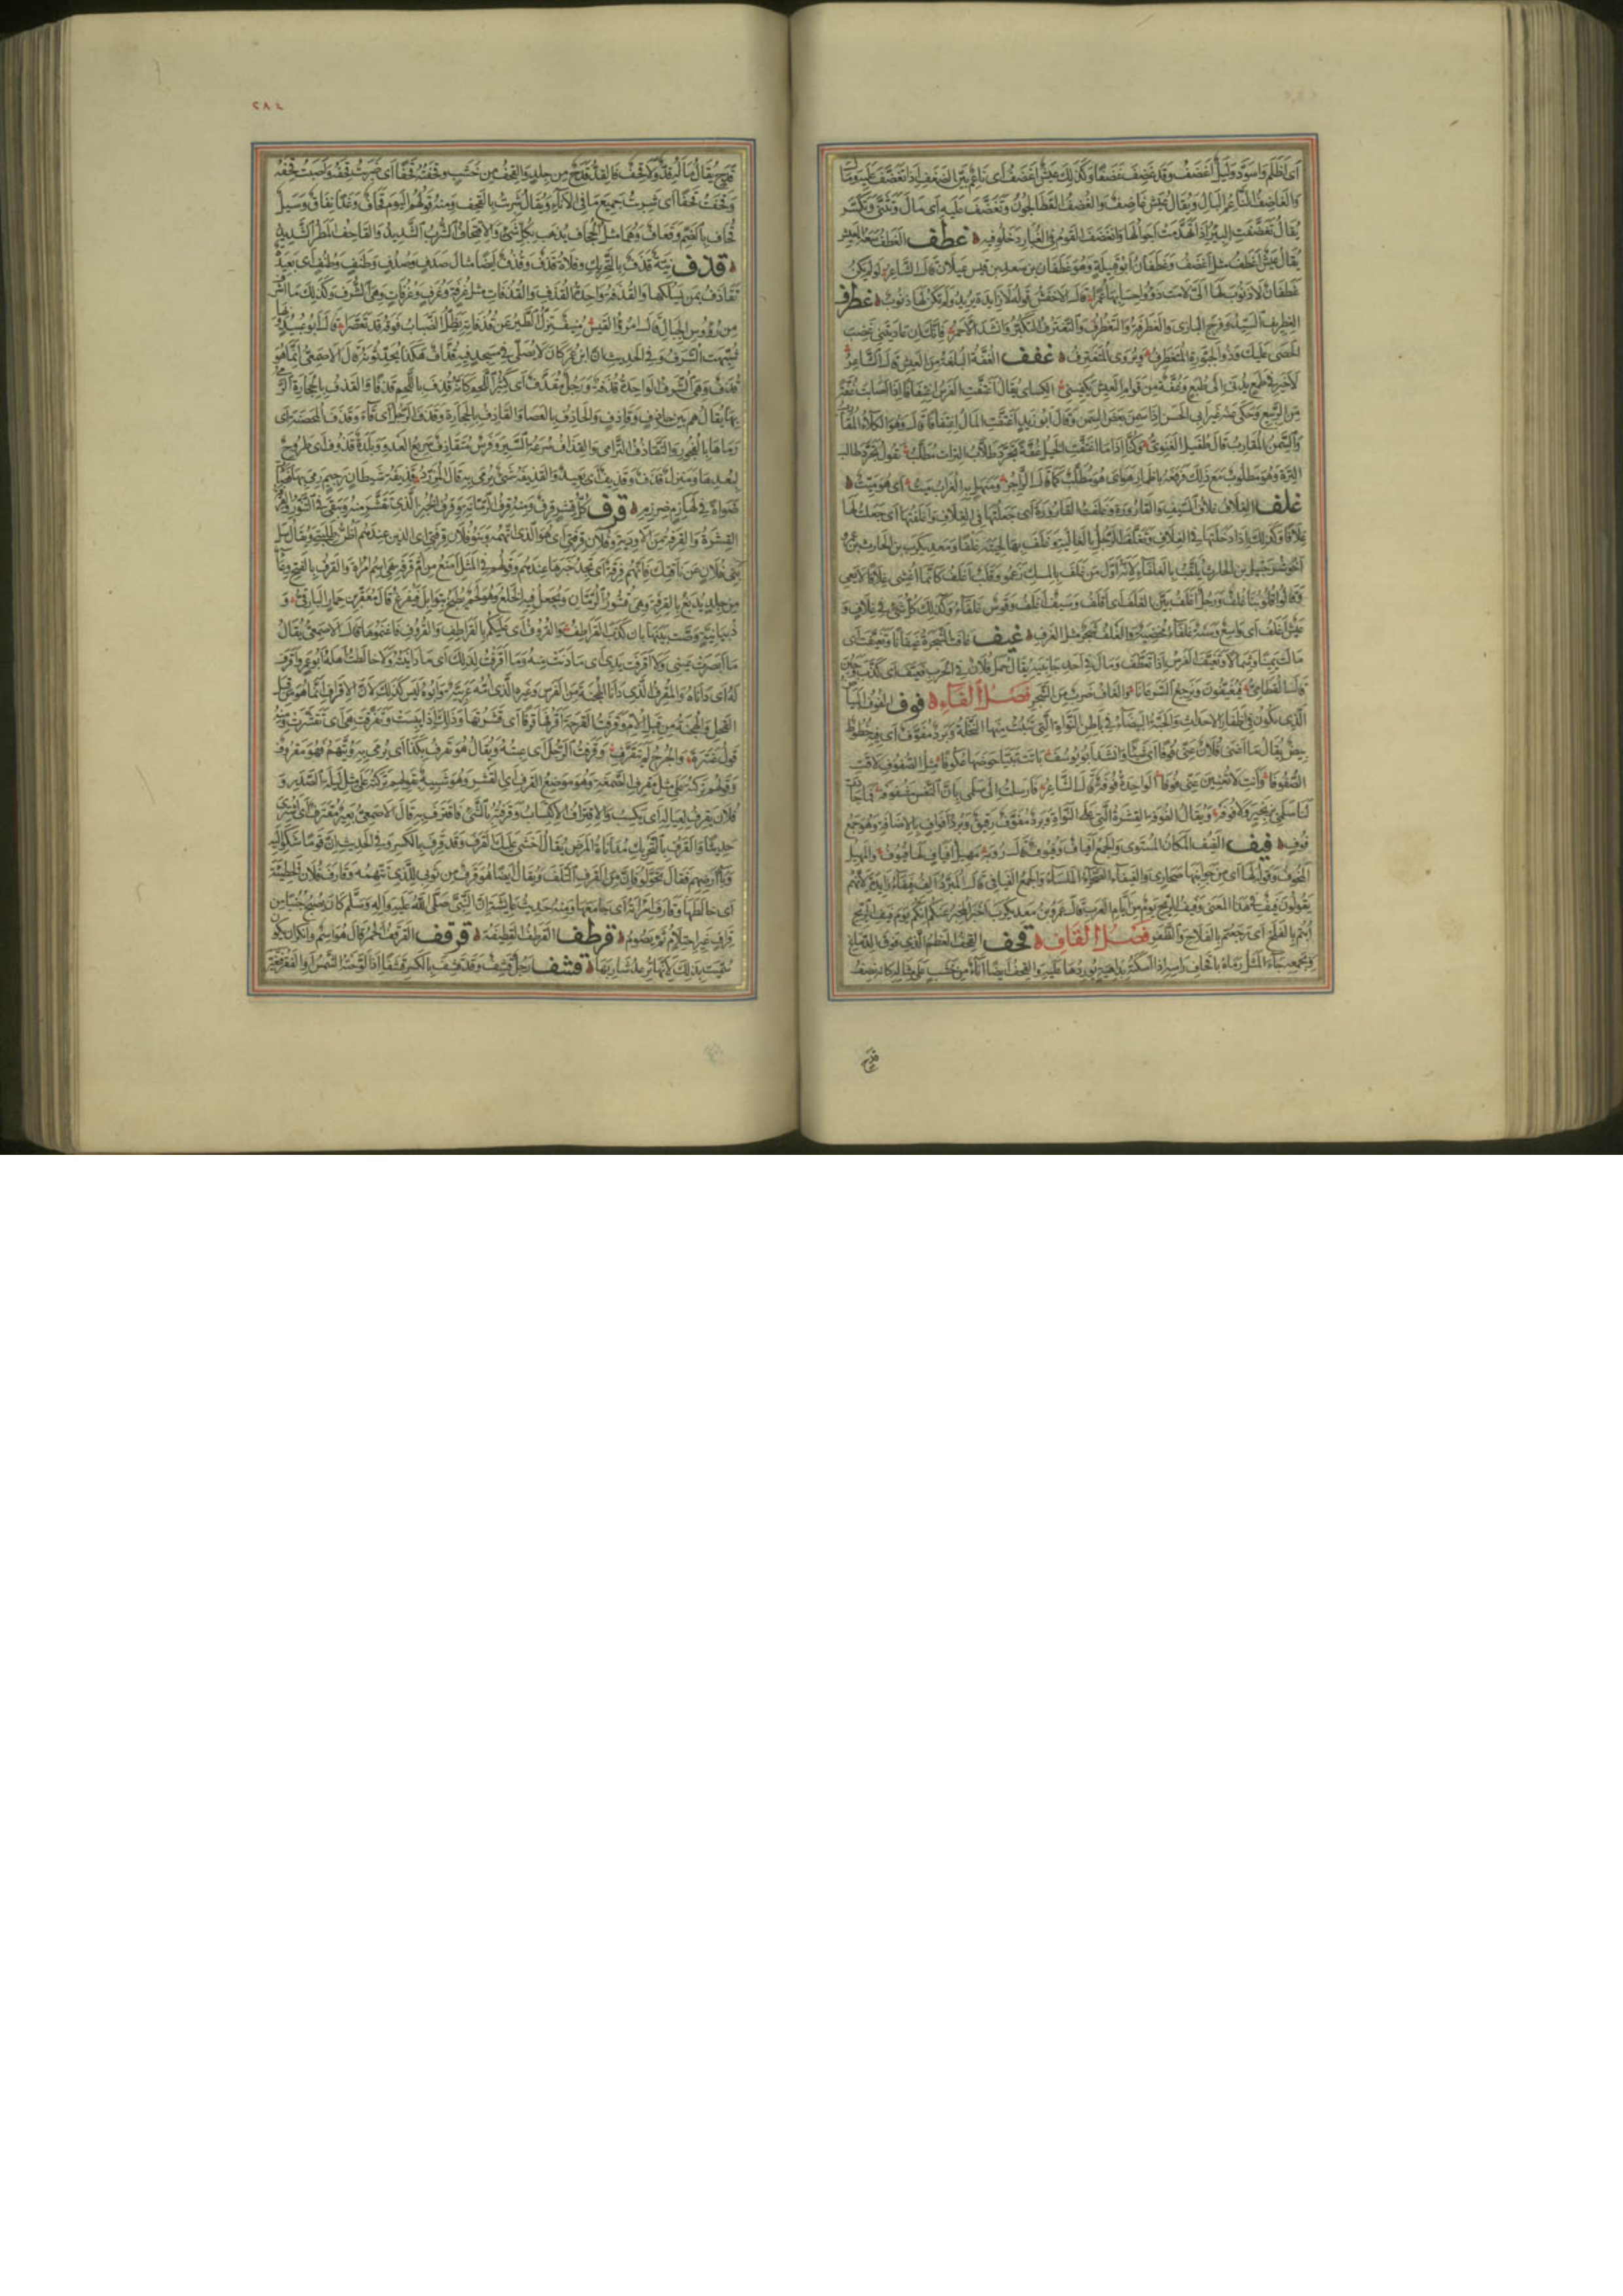 ٢٨٤
اى اظلم واسود وليل اغضف وقد غضف غضفا وكذلك عيش اغضف اى ناعم بين الغضف اذا تغضف عليه ومال
والغاضف الناعم البال ويقال عيش غاضف والغضف القطا الجون وتغضف عليه اى مال وتثنى وتكسر
يقال تغضفت البئر اذا تهدمت اجوالها وانغضف القوم فى الغبار دخلوا فيه غطف الغطف سعة العيش
يقال عيش اغطف مثل اغضف وغطفان ابو قبيلة وهو غطفان بن سعد بن قيس عيلان قال الشاعر لو لم تكن
غطفان لا ذنوب لها الى لامت ذوو احسابها عمرا قال الاخفش قوله لا زايدة يريد ولم تكن لها ذنوب غطرف
الغطريف السيد وفرخ البازى والغطرفة والتغطرف والتغترف التكبر وانشد الاحمر فانك ان عاديتنى غضب
الحصى عليك وذو الجبورة المتغطرف ويروى المتغترف غفف الغفة البلغة من العيش قال الشاعر
لا خير فى طمع يدنى الى طبع وغفة من قوام العيش تكفينى الكساى يقال اغتفت الفرس اغتفافا اذا اصابت غفة
من الربيع وحكى عنه غير ابى الحسن اذا سمن بعض السمن وقال ابو زيد اغتفت المال اغتفافا قال وهو الكلأ المقارب
والسمن المقارب قال طفيل الغنوى وكنا اذا ما اغتفت الخيل غفة تجرد طلاب الترات مطلب يقول تجرد طالب
الترة وهو مطلوب مع ذلك فرفعه باضمار هو اى هو مطلب كما قال الراجز ومنهل فيه الغراب ميت اى هو ميت
غلف الغلاف غلاف السيف والقارورة وغلفت القارورة اى جعلتها فى الغلاف واغلفتها اى جعلت لها
غلافا وكذلك اذا ادخلتها فى الغلاف وتغلف الرجل بالغالية وغلف بها لحيته غلفا ومعديكرب بن الحارث بن عمرو
اخو شرحبيل بن الحارث يلقب بالغلفاء لانه اول من غلف بالمسك زعموا وقلب اغلف كانما اغشى غلافا لا يعى
وقالوا قلوبنا غلف ورجل اغلف بين الغلف اى اقلف وسيف اغلف وقوس غلفاء وكذلك كل شئ فى غلاف و
عيش اغلف اى واسع وسنة غلفاء مخصبة والغلف شجر مثل الغرف غيف غافت الشجرة غيفانا وتغيفت اى
مالت يمينا وشمالا وتغيف الفرس اذا تعطف ومال فى احد جانبيه يقال حمل فلان فى الحرب فغيف اى كذب وجبن
قال القطامى فيغيفون ونرجع السرعانا والغاف ضرب من الشجر فصل الفاء فوف الفوف البياض
الذى يكون فى اظفار الاحداث والحبة البيضاء فى باطن النواة التى تنبت منها النخلة وبرد مفوف اى فيه خطوط
بيض يقال ما اغنى فلان عنى فوفا اى شيئا وانشد ابو يوسف باتت تبيا حوضها عكوفا مثل الصفوف لاقت
الصفوفا وانت لا تغنين عنى فوفا الواحدة فوفة قال الشاعر فارسلت الى سلمى بان النفس مشغوفه فما جادت
لنا سلمى بزنجير ولا فوفه ويقال الفوفة القشرة التى على النواة وبرد مفوف رقيق وبرد افواف بالاضافة وهو جمع
فوف فيف الفيف المكان المستوى والجمع افياف وفيوف قال رؤبة مهيل افياف لها فيوف والمهيل
المخوف وقوله لها اى من جوانبها صحارى والفيفاء الصحراء الملساء والجمع الفيافى قال المبرد الف فيفاء زايدة لانهم
يقولون فيف فى هذا المعنى وفيف الريح يوم من ايام العرب قال عمرو بن معديكرب اخبر المخبر عنكم انكم يوم فيف الريح
ابتم بالفلج اى رجعتم بالفلاح والظفر فصل القاف قحف القحف العظم الذى فوق الدماغ
وجمعه جاء المثل رماه باقحاف راسه اذا اسكته بداهية يوردها عليه والقحف ايضا اناء من خشب على مثاله كانه نصف
قدح
قدح يقال ما له قد ولا قحف فالقد قدح من جلد والقحف من خشب وقحفته قحفا اى ضربت قحفه واصبت قحفه
وقحفت قحفا اى شربت جميع ما فى الاناء ويقال شربت بالقحف ومنه قولهم اليوم قحاف وغدا نقاف وسيل
قحاف بالضم وقعاف وهما مثل الجحاف يذهب بكل شئ والاقتحاف الشرب الشديد والقاحف المطر الشديد
قذف نية قذف بالتحريك وفلاة قذف وقذف ايضا مثال صدف وصدف وطنف وطنف اى بعيدة
تقاذف بمن يسلكها والقذفة واحدة القذف والقذفات مثل غرفة وغرف وغرفات وهى الشرف وكذلك ما اشرف
من رؤوس الجبال قال امرؤ القيس منيف تزل الطير عن قذفاته يظل الضباب فوقه قد تعصرا قال ابو عبيد وبها
شبهت الشرف وفى الحديث ان ابن عمر كان لا يصلى فى مسجد فيه قذاف هكذا يحدثونه قال الاصمعى انما هو
قذف وهى الشرف الواحدة قذفة ورجل مقذف اى كثير اللحم كانه قذف باللحم قذفا والقذف بالحجارة الرمى
بها يقال هم بين حاذف وقاذف والحاذف بالعصا والقاذف بالحجارة وقذف الرجل اى قاء وقذف المحصنة اى
رماها بالفجور والتقاذف الترامى والقذاف سرعة السير وفرس متقاذف سريع العدو وبلدة قذوف اى طروح
لبعدها ومنزل قذف وقذيف اى بعيد والقذيفة شئ يرمى به قال المزرد قذيفة شيطان رجيم رمى بها فصارت
ضواة فى لهازم ضرزم قرف كل قشر قرف ومنه قرف الرمانة وقرف الخبز الذى تقشر منه ويبقى فى التنور والقرفة
القشرة والقرفة من الادوية وفلان قرفتى اى هو الذى اتهمه وبنو فلان قرفتى اى الذين عندهم اظن طلبتى ويقال سل
بنى فلان عن ناقتك فانهم قرفة اى تجد خبرها عندهم وقولهم فى المثل امنع من ام قرفة هى اسم امراة والقرف بالفتح وعاء
من جلد يدبغ بالقرفة وهى قشور الرمان ويجعل فيه الخلع وهو لحم يطبخ بتوابل فيفرغ قال معقر بن حمار البارقى و
ذبيانية وصت بنيها بان كذب القراطف والقروف اى عليكم بالقراطف والقروف فاغنموها قال الاصمعى يقال
ما ابصرت عينى ولا اقرفت يدى اى ما دنت منه وما اقرفت لذلك اى ما دانيته ولا خالطت اهله ابو عمرو اقرف
له اى داناه والمقرف الذى دانا الهجنة من الفرس وغيره الذى امه عربية وابوه ليس كذلك لان الاقراف انما هو من قبل
الفحل والهجنة من قبل الام وقرفت القرحة اقرفها قرفا اى قشرتها وذلك اذا يبست وتقرفت هى اى تقشرت ومنه
قول عنترة والجرح لم يتقرف وقرفت الرجل اى عبته ويقال هو يقرف بكذا اى يرمى به ويتهم فهو مقروف
وقولهم تركته على مثل مقرف الصمغة وهو موضع القرف اى القشر وهو شبيه بقولهم تركته على مثل ليلة الصدر و
فلان يقرف لعياله اى يكسب والاقتراف الاكتساب وقرفته بالشئ فاقترف به قال الاصمعى بعير مقترف اى اشترى
حديثا والقرف بالتحريك مداناة المرض يقال اخشى عليك القرف وقد قرف بالكسر وفى الحديث ان قوما شكوا اليه
وباء ارضهم فقال تحولوا فان من القرف التلف ويقال ايضا هو قرف من ثوبى للذى تتهمه وقارف فلان الخطيئة
اى خالطها وقارف امراته اى جامعها ومنه حديث عايشة ان النبى صلى الله عليه وآله وسلم كان يصبح جنبا من
قراف غير احتلام ثم يصوم قرطف القرطف القطيفة قرقف القرقف الخمر قال هو اسم وانكر ان تكون
سميت بذلك لانها ترعد شاربها قشف رجل قشف وقد قشف بالكسر قشفا اذا لوحته الشمس او الفقر فتغير